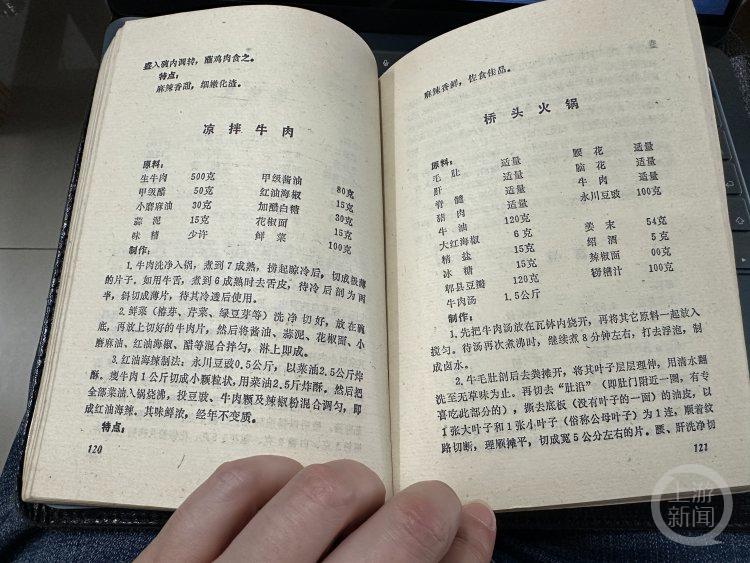 盛入碗内调转,蘸鸡肉食之。
特点:
麻辣香甜,细嫩化渣。
凉拌牛肉
原料:
生牛肉 500克 甲级酱油 80克
甲级醋 50克 红油海椒 15克
小磨麻油 30克 加酷白糖 30克
蒜泥 15克 花椒面 15克
味精 少许 鲜菜 100克
制作:
1.牛肉洗净入锅,煮到7成熟,捞起晾冷后,切成极薄
的片子。如用牛舌,煮到6成熟时去舌皮,待冷后剖为两
半,斜切成薄片,待其冷透后使用。
2.鲜菜(椿芽、芹菜、绿豆芽等)洗净切好,放在碗
底,再放上切好的牛肉片,然后将酱油、蒜泥、花椒面、小
磨麻油、红油海椒、醋等混合拌匀,淋上即成。
3.红油海辣制法:永川豆豉0.5公斤,以菜油2.5公斤炸
酥。瘦牛肉1公斤切成小颗粒状,用菜油2.5斤炸酥。然后把
全部菜油入锅烧沸,投豆豉、牛肉颗及辣椒粉混合调匀,即
成红油海辣。其味鲜浓,经年不变质。
特点:
120
麻辣香鲜,佐食佳品。
桥头火锅
原料:
毛肚 适量 腰花 适量
肝 适量 脑花 适量
脊髓 适量 牛肉 适量
猪肉 适量 永川豆豉 100克
牛油 120克
大红海椒 6克 姜末 54克
精盐 15克 绍酒 5克
冰糖 15克 辣椒面 00克
郫县豆瓣 120克 醪糟汁 00克
牛肉汤 1.5公斤
制作:
1.先把牛肉汤放在瓦钵内烧开,再将其它原料一起放入
搅匀。待汤再次煮沸时,继续煮8分钟左右,打去浮泡,制
成卤水。
2.牛毛肚剖后去粪摊开,将其叶子层层理伸,用清水翻
洗至无草味为止。再切去“肚沿”(即肚门附近一圈,有专
喜吃此部分的),撕去底板(没有叶子的一面)的油皮,以
1张大叶子和1张小叶子(俗称公母叶子)为1连,顺着纹
路切断,理顺摊平,切成宽5公分左右的片。腰、肝洗净切
121
上游
新闻